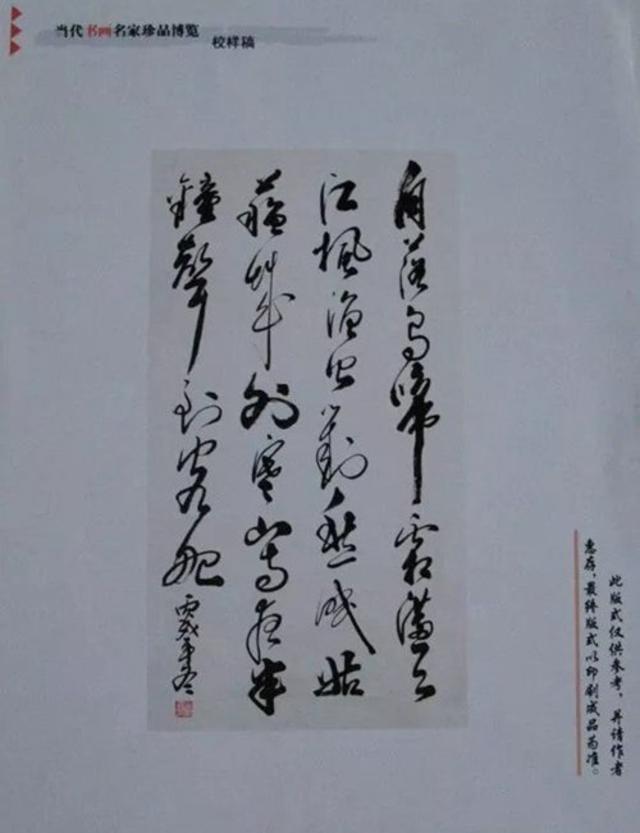 当代书画名家珍品博览
校样稿
月落烏啼霜滿天
江楓漁火對愁眠姑
蘇城外寒山寺夜半
鐘聲到客船
丙戌年冬
此版式仅供参考，并请作者
惠存，最终版式以印刷成品为准。